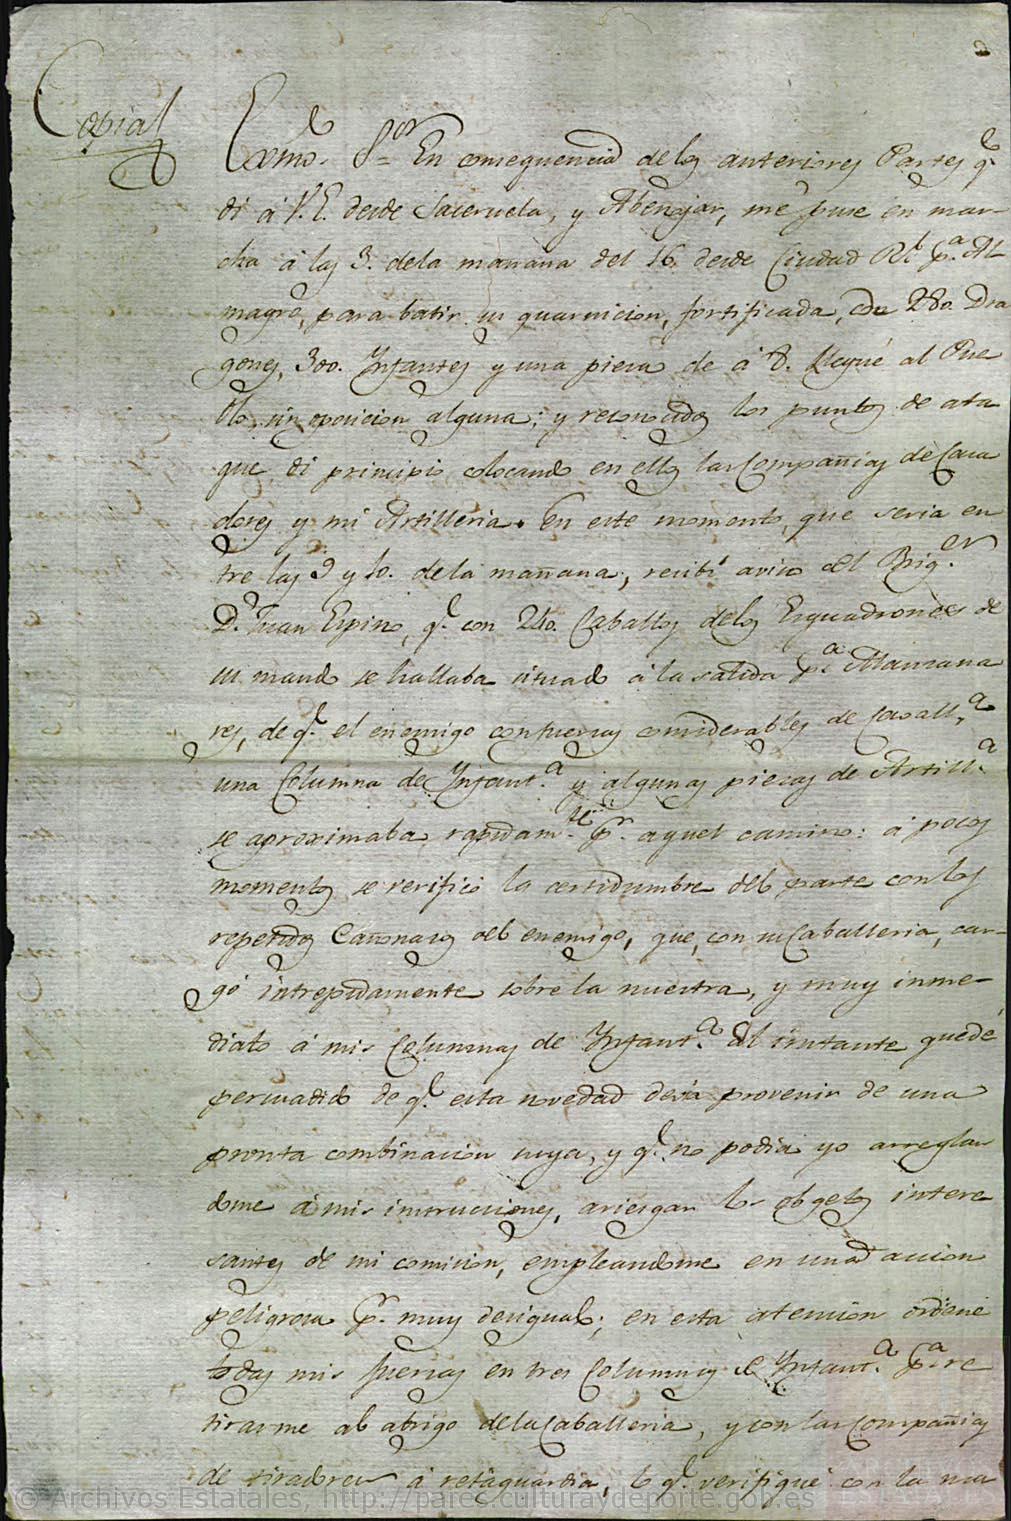 2
Copia
Exmo. Sor = En consequencia de los anteriores Partes q.e
di á V.E. desde Saceruela, y Abenojar, me puse en mar-
cha á las 3. dela mañana del 16. desde Ciudad Rl. p.a Al-
magro, para batir su guarnicion, fortificada, con 280. Dra
gones, 300. Infantes y una pieza de á 8. Llegué al Pue
blo sin oposicion alguna; y reconocidos los puntos de ata
que di principio colocando en ellos las Compañias de Caza
dores y mi Artilleria. En este momento, que seria en
tre las 9 y 10. dela mañana, recibí aviso del Brig.er
D.n Juan Espino, q.e con 240. Caballos delos Esquadrones de
su mando se hallaba situado á la salida p.a Manzana
res, de q.e el enemigo con fuerzas considerables de Cavall.a
una Columna de Infant.a y algunas piezas de Artill.a
se aproximaba rapidam.te p.r aquel camino: á pocos
momentos se verificó la certidumbre del parte con los
repetidos Cañonazos del enemigo, que, con su Caballeria, car-
gó intrepidamente sobre la nuestra, y muy inme-
diato á mis Columnas de Infant.a Al instante quedé
persuadido de q.e esta novedad devia provenir de una
pronta combinacion suya, y q.e no podia yo arreglan
dome á mis instrucciones, ariesgar los obgetos intere
santes de mi comision, empleandome en una accion
peligrosa p.r muy desigual; en esta atencion ordené
todas mis fuerzas en tres Columnas de Infant.a p.a re
tirarme al abrigo dela Caballeria, y con las Compañias
de tiradores á retaguardia, lo q.e verifiqué con la ma
© Archivos Estatales, http://pares.culturaydeporte.gob.es